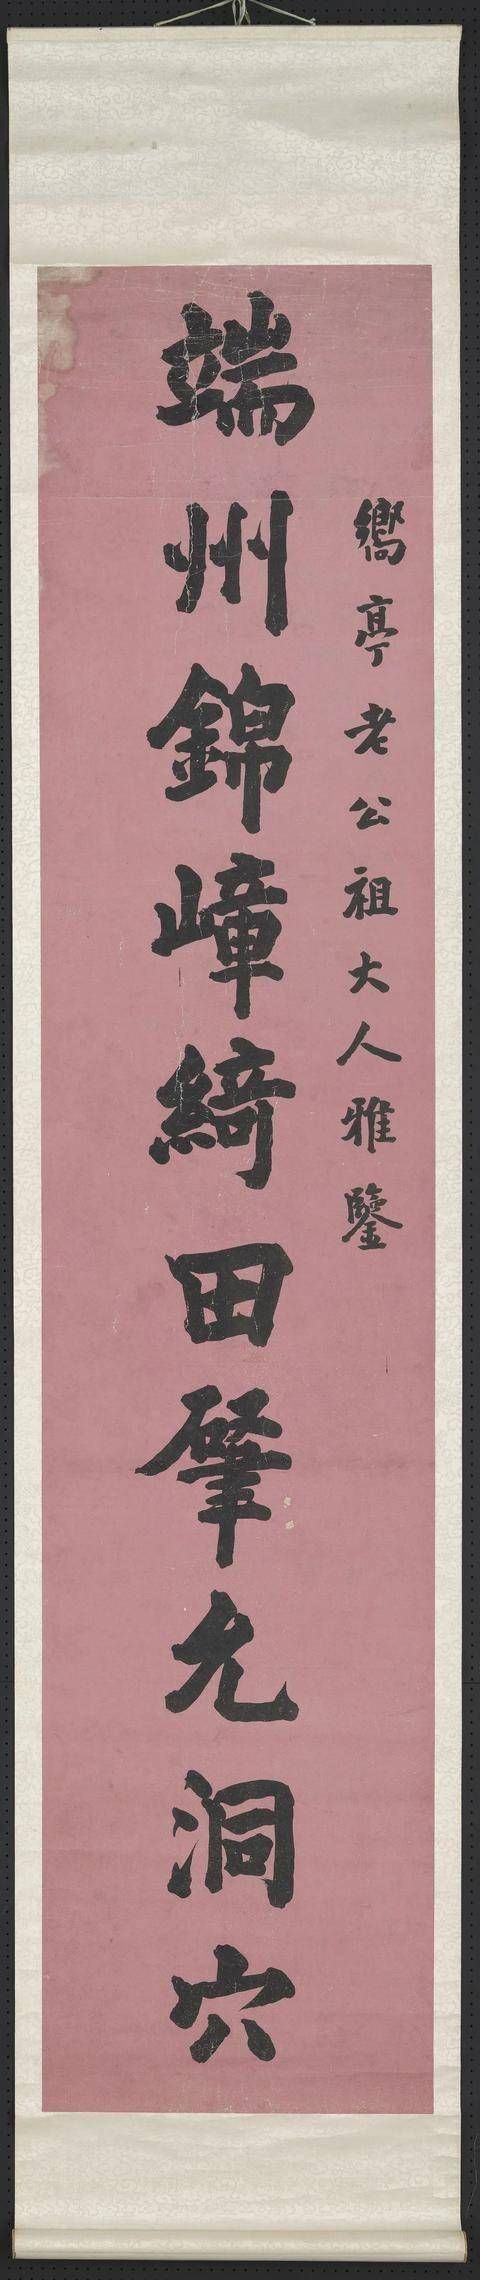 嚮亭老公祖大人雅鑒
端州錦嶂綺田肇允洞穴